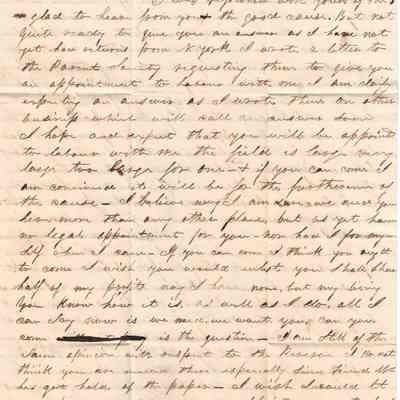 glad to hear from you & the good cause. But not
quite ready to give you an answer as I have not
yet had returns from N York I wrote a letter to
the Parent Society requesting them to give you
an appointment to labour with me I am daily
expecting an answer as I wrote them on other
business which will call an answer soon
I hope and expect that you will be appointed
to labour with me the field is large very
large too large for one & if you can come I
am convinced it will be for the furtherance of
the cause I believe may I am sure we need you
here more than any other place, but as yet have
no legal appointment for you nor had I for my
self when I came If you can come I think you ought
to come I wish you would
half of my profits nay I have none, but my being
You know how it is as well as I do, all I
can say now is we need, we want you, can you
come is the question I am still of the
Same opinion with respect to the I do not
think you are there especially since friend
has got hold of the paper I wish I could